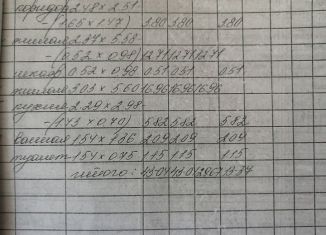 коридор 2.48 х 2.51
-(1.65 х 1.47) 3.80 3.80 3.80
жилая 2.37 х 5.58
-(0.52 х 0.98) 12.71 12.71 12.71
шкаф 0.52 х 0.98 0.51 0.51 0.51
жилая 3.03 х 5.60 16.96 16.96 16.96
кухня 2.29 х 2.98
-(1.43 х 0.70) 5.82 5.82 5.82
ванная 1.54 х 1.36 2.09 2.09 2.09
туалет 1.54 х 0.75 1.15 1.15 1.15
итого: